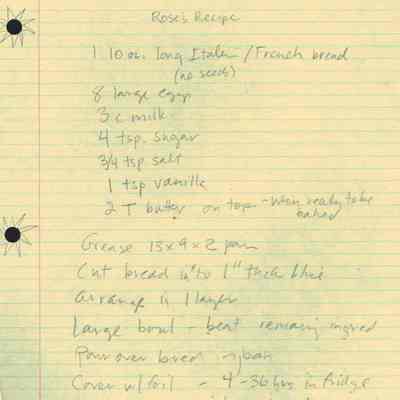 Rose's Recipe
1 10 oz. long Italian / French bread
(no seeds)
8 large eggs
3 c milk
4 tsp. sugar
3/4 tsp salt
1 tsp vanilla
2 T butter on top - when ready to be
baked
Grease 13 x 9 x 2 pan
Cut bread into 1" thick
Arrange in 1 layer
Large bowl - beat remaining ingred
Pour over bread in pan
Cover w/ foil - 4-36 hrs in fridge